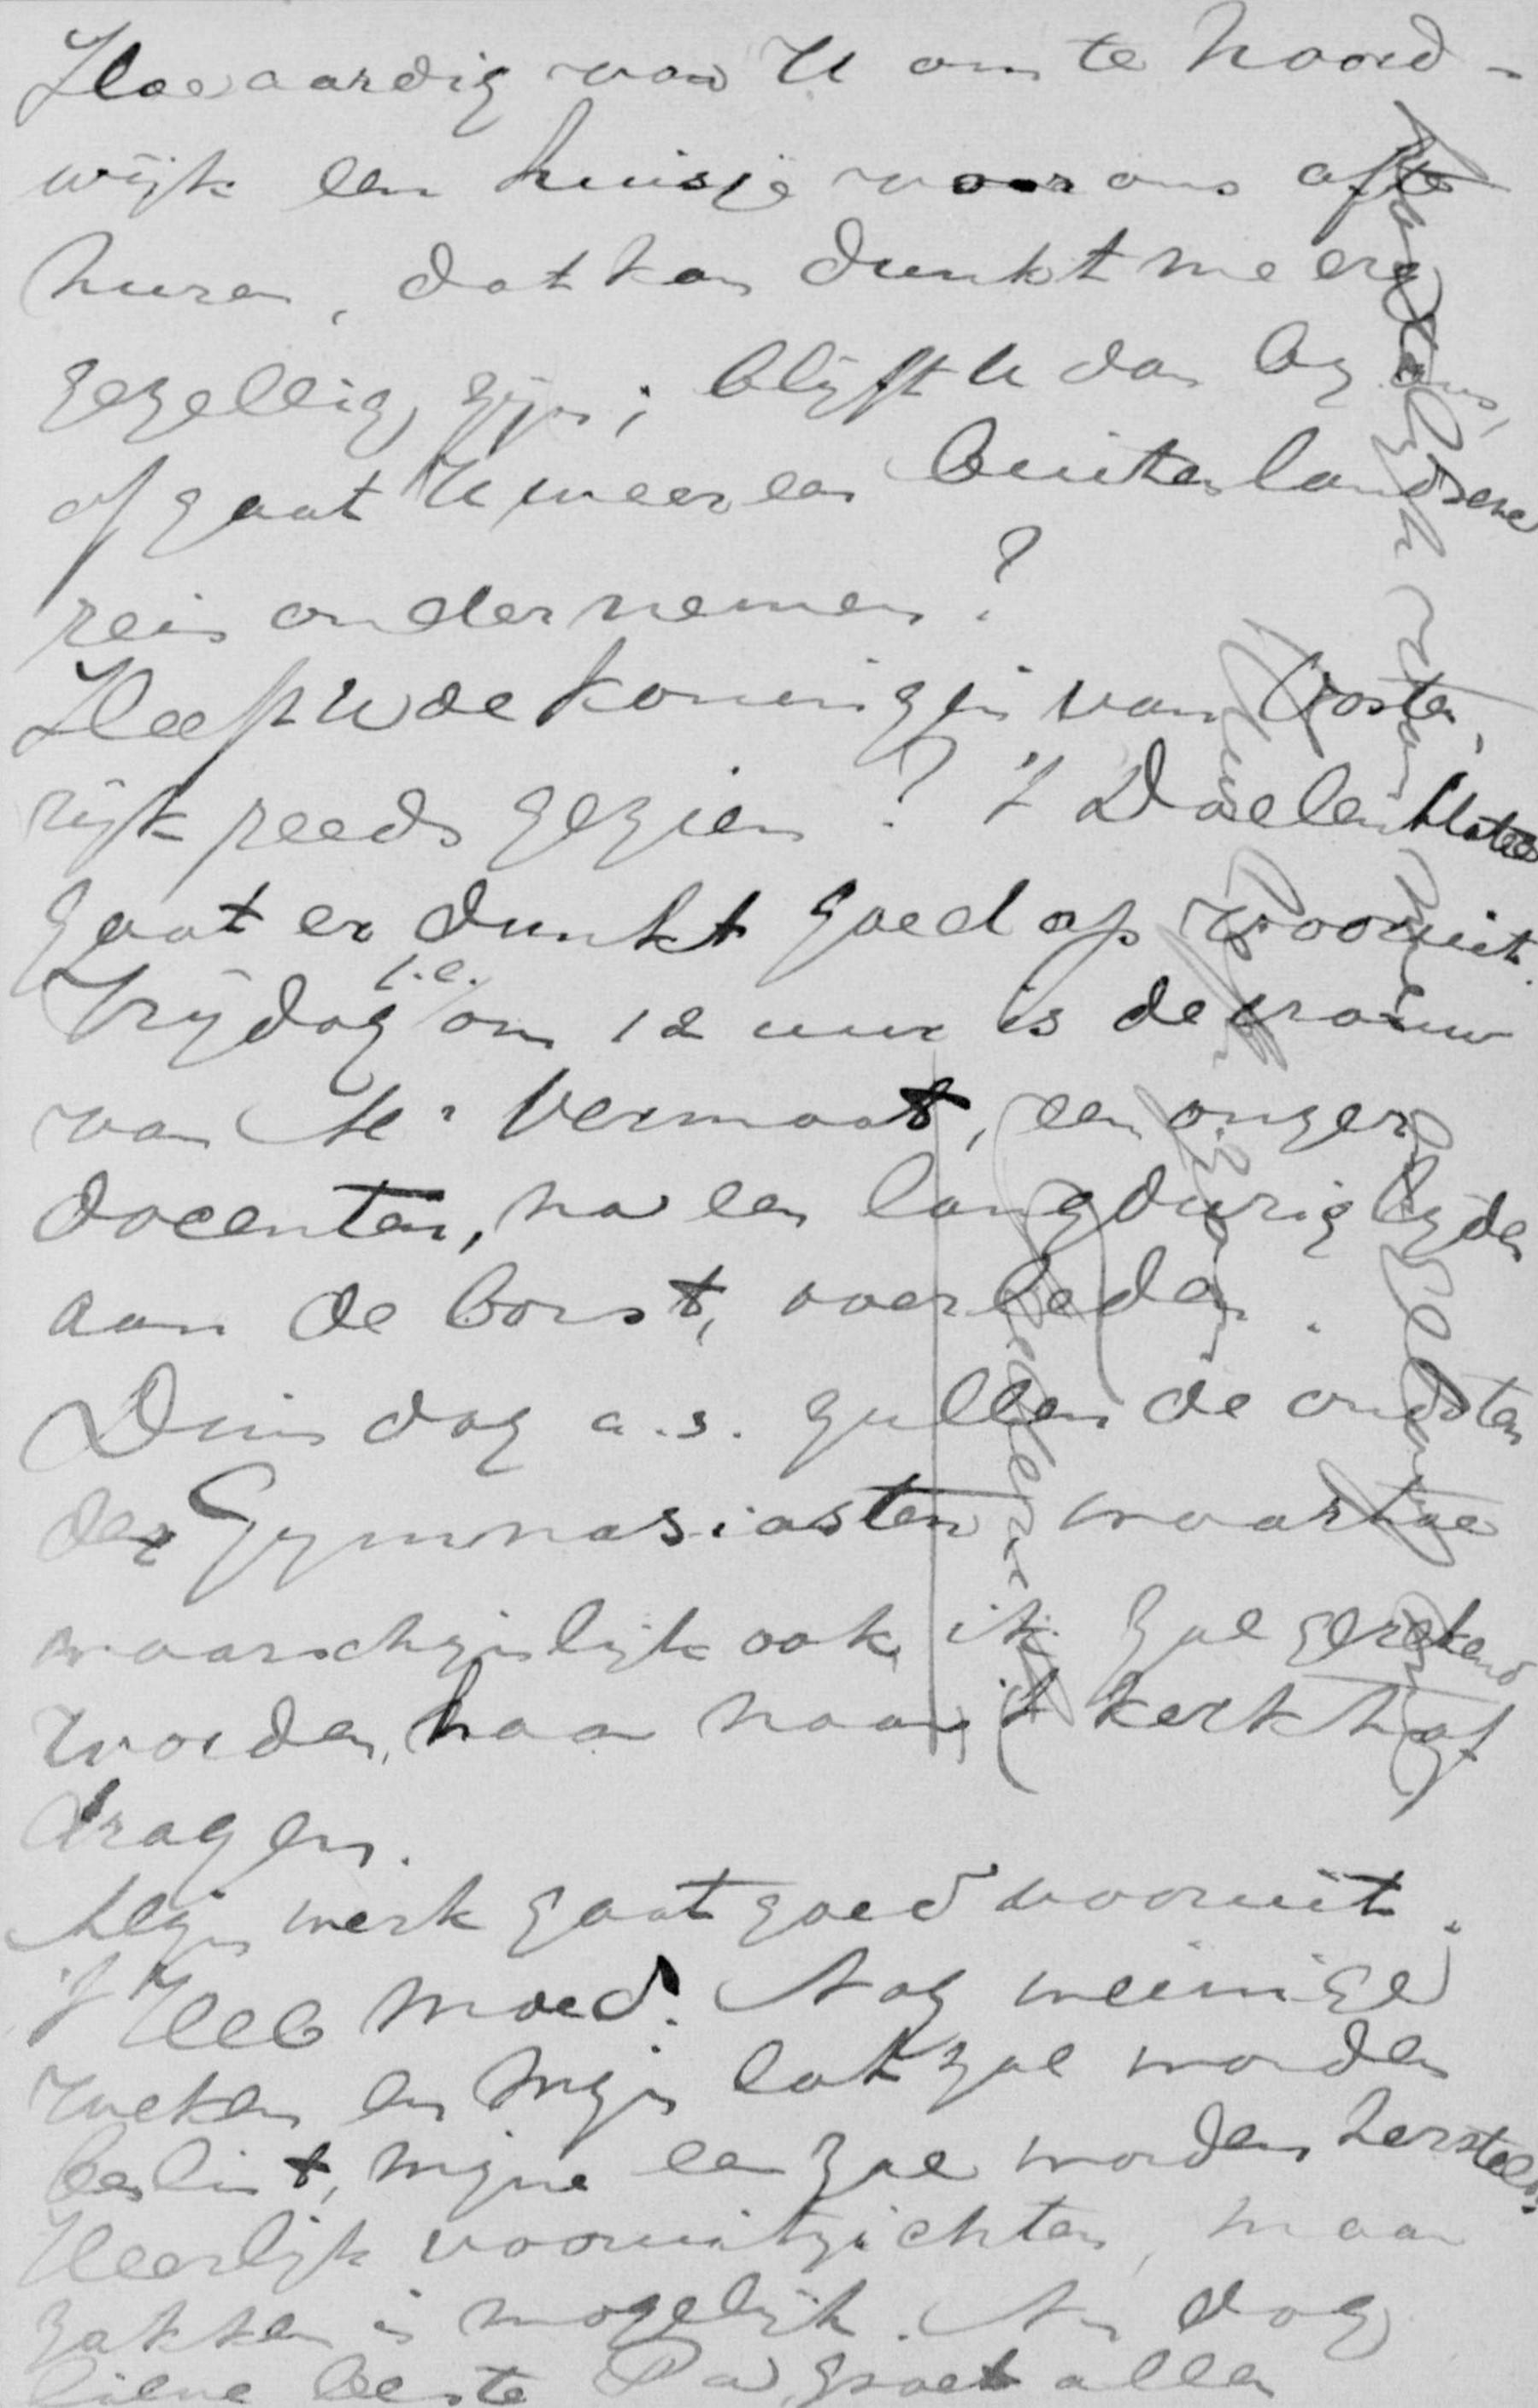 Hoe aardig van U om te Noord-
wijk een huisje voor ons af te
huren, dat kan dunkt me erg
gezellig zijn; blijft U dan by ons,
of gaat U weer een buitenlandsche
reis ondernemen?
Heeft U de koningin van Oosten-
rijk reeds gezien? 't Doelen Hotel
gaat er dunkt goed op vooruit.
Vrijdag l.l. om 12 uur is de vrouw
van Mr Vermaat, een onzer
docenten, na een langdurig lijden
aan de borst, overleden.
Dinsdag a.s. zullen de oudsten
der Gymnasiasten waartoe
waarschijnlijk ook ik zal gerekend
worden, haar naar 't kerkhof
dragen.
Mijn werk gaat goed vooruit.
'k Heb moed. Nog weinige
weken en mijn lot zal worden
beslist, mijne eer zal worden hersteld.
Heerlijk vooruitzichten, maar
zakken is mogelijk. Nu dag
lieve beste Pa, groet allen